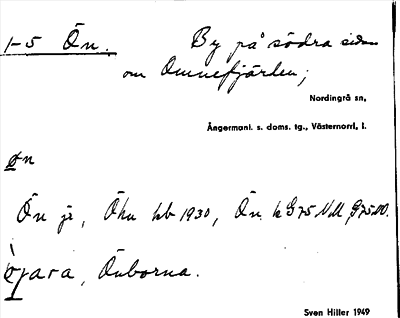 1-5 Ön. By på södra sidan
om Omnefjärden;
Nordingrå sn,
Ångermanl. s. doms. tg., Västernorrl, l.
øn
Ön jr, Öhn kb 1930, Ön k G75 NV
Önborna.
Sven Hiller 1949